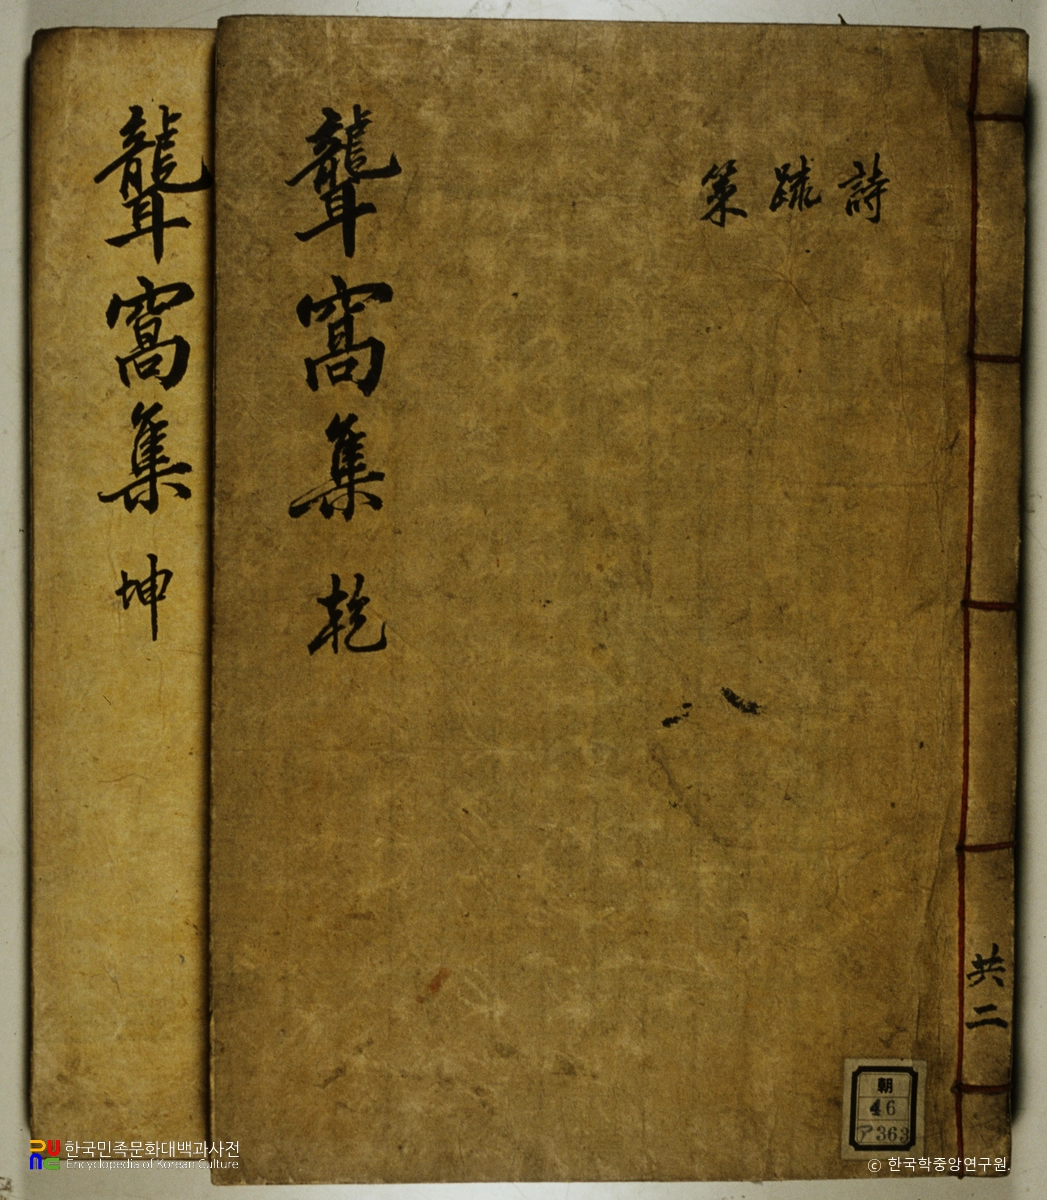 詩 疏 策
聾窩集 乾
聾窩集 坤
共二
朝
46
ア363
한국민족문화대백과사전
Encyclopedia of Korean Culture
ⓒ 한국학중앙연구원.